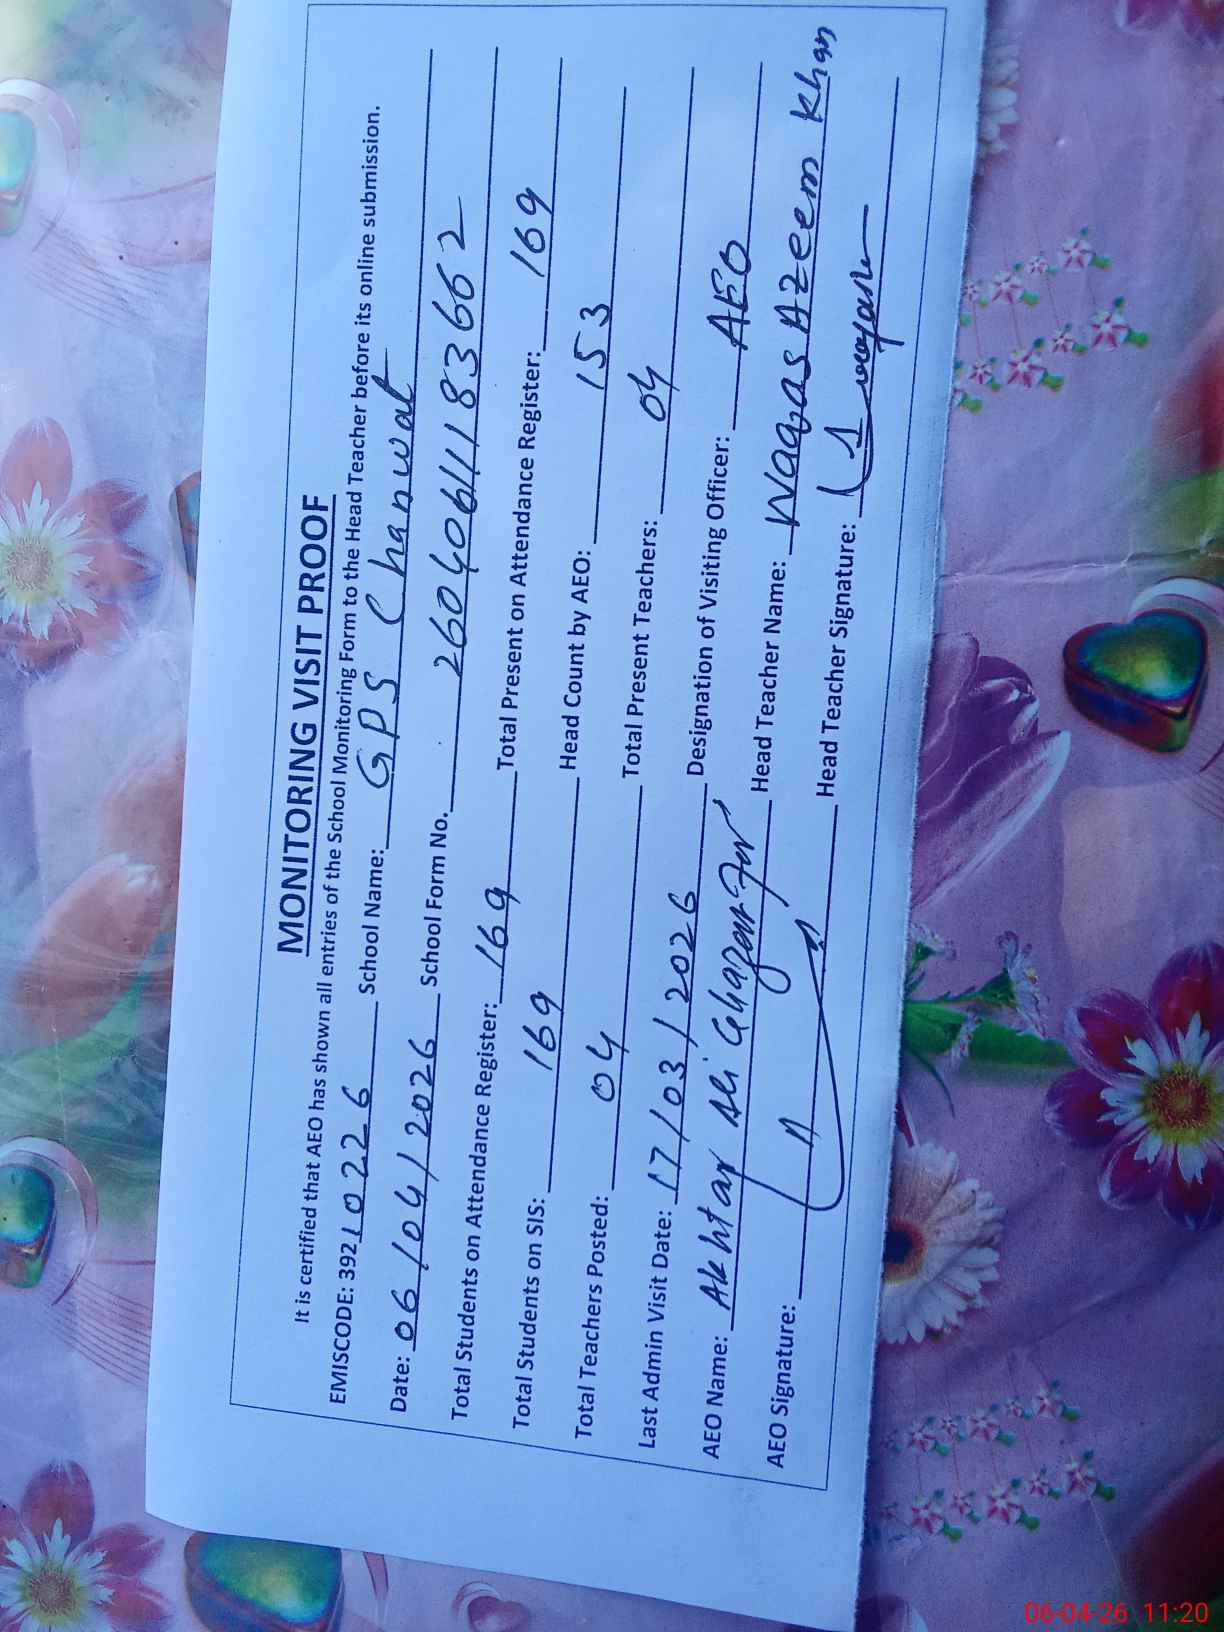 MONITORING VISIT PROOF
It is certified that AEO has shown all entries of the School Monitoring Form to the Head Teacher before its online submission.
EMISCODE: 39210226 School Name: GPS Chanwat
Date: 06/04/2026 School Form No. 2604061183662
Total Students on Attendance Register: 169 Total Present on Attendance Register: 169
Total Students on SIS: 169 Head Count by AEO: 153
Total Teachers Posted: 04 Total Present Teachers: 04
Last Admin Visit Date: 17/03/2026 Designation of Visiting Officer: AEO
AEO Name: Akhtar Ali Ghazanfer Head Teacher Name: Waqas Azeem Khan
AEO Signature: Head Teacher Signature:
06-04-26 11:20